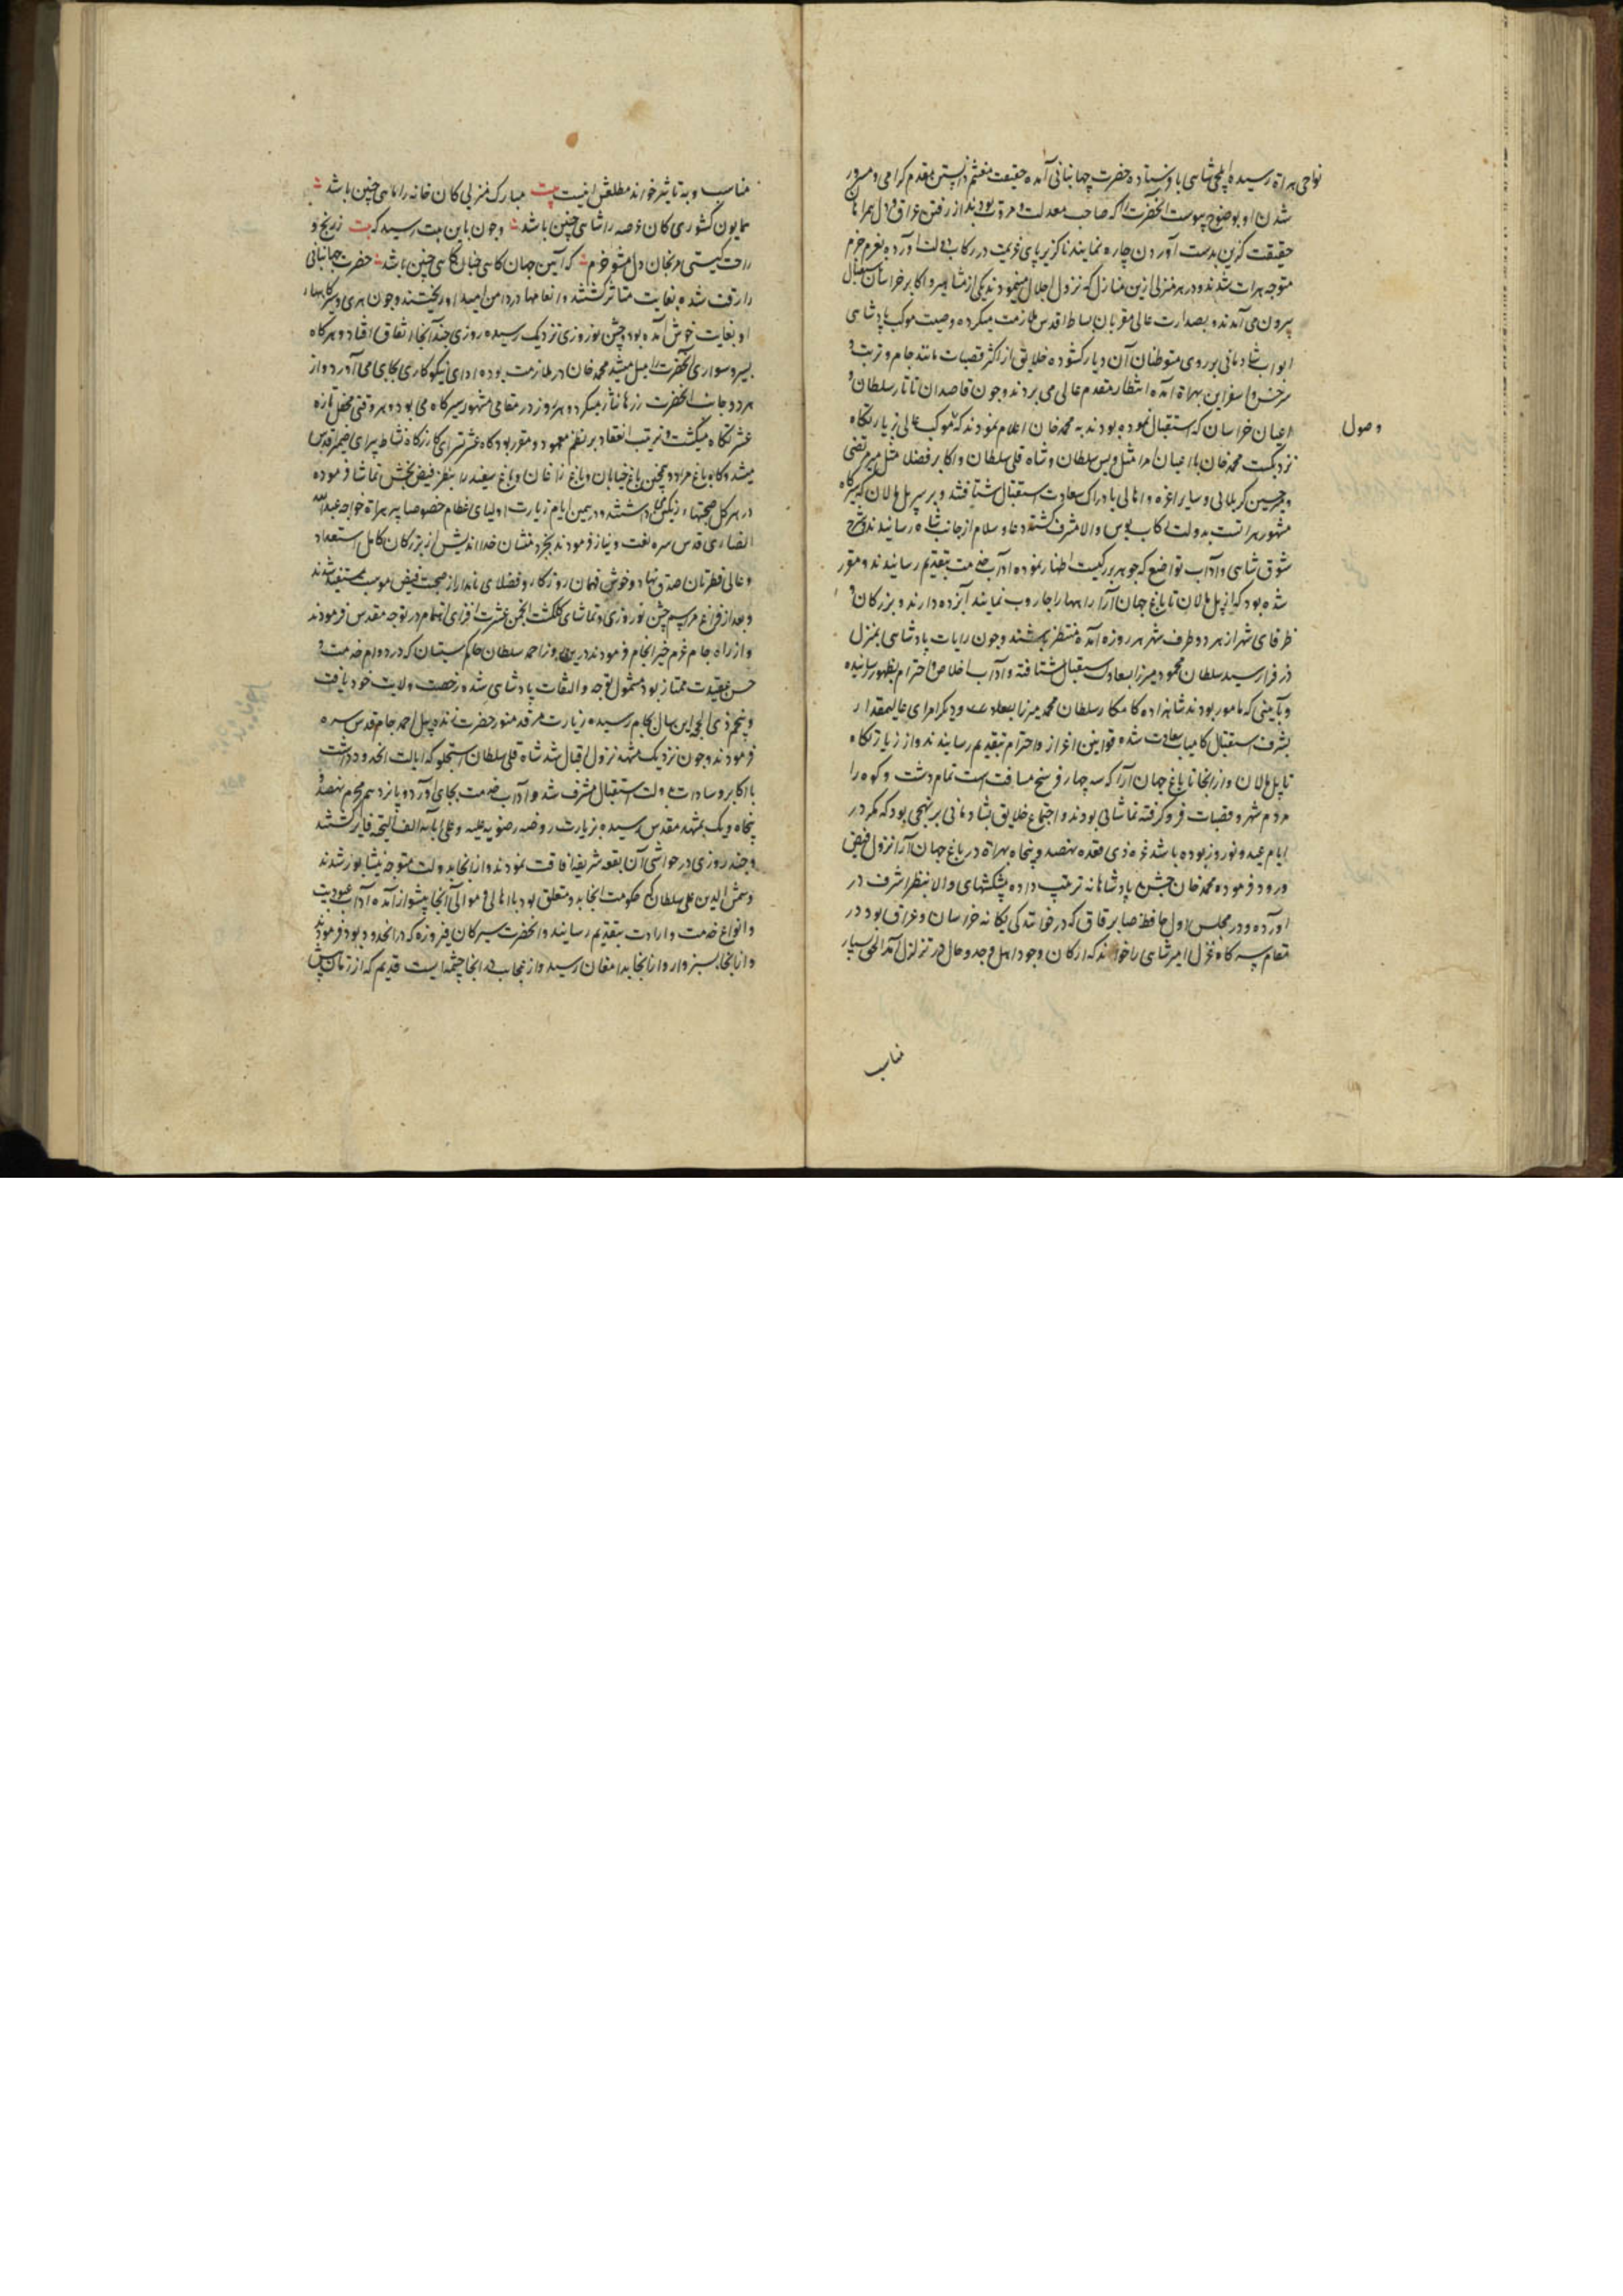 نواحی هراة رسیده ایلچی شاهی باو فرستاده حضرت جهانبانی آمده حقیقت مغتنم دانستن مقدم کرامی و مسرور
شدن او بوضوح پیوست آنحضرت را که صاحب معدلت و مروت بودند از رفتن عراق و دل همراهان
حقیقت کزین بدست آوردن چاره نمایند ناکزیر پای عزیمت در رکاب دولت آورده بعزم جزم
متوجه هرات شدند و در هر منزلی ازین منازل که نزول اجلال میفرمودند یکی از مشاهیر و اکابر خراسان باستقبال
بیرون می آمدند و بصدارت عالی مقربان بساط اقدس ملازمت میکرده وصیت موکب پادشاهی
ابواب شادمانی بر روی متوطنان آن دیار کشوده خلایق از اکثر قصبات مانند جام و تربت و
سرخس و اسفراین بهراة آمده انتظار مقدم عالی می بردند و چون قاصدان تاتار سلطان و
اعیان خراسان که استقبال نموده بودند به محمد خان اعلام نمودند که موکب عالی بزیارتکاه
وصول
نزدیکست محمد خان با اعیان امرا مثل ویس سلطان و شاه قلی سلطان و اکابر فضلا مثل میر مرتضی
و میر حسین کربلائی و سایر اعزه و اهالی بادراک سعادت استقبال شتافتند و بر سر پل مالان که سیرکاه
مشهور هراتست بدولت رکاب بوس والا مشرف کشتند دعا و سلام از جانب شاه رسانیدند و شرح
شوق شاهی و آداب تواضع که جوهر بزرکیست اظهار نموده آداب خدمت بتقدیم رسانیدند و مقرر
شده بود که از پل مالان تا باغ جهان آرا راهها را جاروب نمایند آبزده دارند و بزرکان و
ظرفای شهر از هر دو طرف شهر هر روزه آمده منتظر باشند و چون رایات پادشاهی بمنزل
فرا رسید سلطان محمود میرزا بسعادت استقبال شتافته و آداب اخلاص و احترام بظهور رسانیده
و بآیینی که مامور بودند شاهزاده کامکار سلطان محمد میرزا بسعادت و دیکر امرای عالیمقدار
بشرف استقبال کامیاب سعادت شده قوانین اعزاز و احترام بتقدیم رسانیدند و از زیارتکاه
تا پل مالان و از انجا تا باغ جهان آرا که سه چهار فرسخ مسافت است تمام دشت و کوه را
مردم شهر و قصبات فرو کرفته تماشائی بودند و اجتماع خلایق بشادمانی بر نهجی بود که مکر در
ایام عید و نوروز بوده باشد غره ذی قعده نهصد و پنجاه بهراة در باغ جهان آرا نزول فیض
ورود فرموده محمد خان جشن پادشاهانه ترتیب داده پیشکشهای والا بنظر اشرف در
آورده و در مجلس اول حافظ صابر قاق که در خوانندکی یکانه خراسان و عراق بود در
مقام سه کاه غزل امیر شاهی را خواند که ارکان وجود اهل وجد و حال در تزلزل آمد الحق بسیار
مناسب
مناسب و به تاثیر خواند مطلعش اینست بیت مبارک منزلی کان خانه را ماهی چنین باشد
همایون کشوری کان عرصه را شاهی چنین باشد و چون باین بیت رسید که بیت ز رنج و
راحت کیتی مرنجان دل مشو خرم که آیین جهان کاهی چنان کاهی چنین باشد حضرت جهانبانی
را رقت شده بغایت متاثر کشتند و انعامها در دامن امید او ریختند و چون هری و سیرکاههاء
او بغایت خوش آمده بود و جشن نوروزی نزدیک رسیده روزی چند آنجا اتفاق افتاد و هرکاه
بسیر و سواری آنحضرت را میل میشد محمد خان در ملازمت بوده ادای نیکو کاری بجای می آورد و از
هر دو جانب انحضرت زرها نثار میکرد و هر روز در مقامی مشهور سیرکاه می بود و هر وقتی محفل تازه
عشرتکاه میکشت و ترتیب انعقاد بر نظم معهود و مقرر بود کاه عشرتسرای کازرکاه نشاط پیرای ضمیر اقدس
میشد و کاه باغ مراد و همچنین باغ خیابان و باغ زاغان و باغ سفید را بنظر فیض بخش تماشا فرموده
در هر کل صحبتهاء رنکین میداشتند و در همین ایام زیارت اولیای عظام خصوصا پیر هراة خواجه عبدالله
انصاری قدس سره لغت و نیاز فرمودند بخرد منشان خدا اندیش از بزرکان کامل استعداد
و عالی فطرتان صدق نهاد و خوش فهمان روزکار و فضلای نامدار از صحبت فیض موهبت مستفید شدند
و بعد از فراغ مراسم جشن نوروزی و تماشای کلکشت انجمن عشرت افزای اهتمام در توجه مقدس فرمودند
و از راه جام عزم خیر انجام فرمودند درین روز احمد سلطان حاکم سیستان که در دوام خدمت و
حسن عقیدت ممتاز بود مشمول توجه و التفات پادشاهی شده رخصت ولایت خود یافت
و پنجم ذی الحجه این سال بجام رسیده زیارت مرقد منور حضرت ژنده پیل احمد جام قدس سره
فرمودند و چون نزدیک مشهد نزول اقبال شد شاه قلی سلطان استجلو که ایالت انحدود داشت
با اکابر و سادات بدولت استقبال مشرف شد و آداب خدمت بجای آورد و پانزدهم محرم نهصد و
پنجاه و یک بمشهد مقدس رسیده بزیارت روضه رضویه علیه و علی آبائه الف التحیه فایز کشتند
و چند روزی در حواشی آن بقعه شریفه اقامت نمودند و از انجا بدولت متوجه نیشابور شدند
و شمس الدین علی سلطان که حکومت انجا بدو متعلق بود با اهالی و موالی آنجا پیشواز آمده آداب عبودیت
و انواع خدمت و ارادت بتقدیم رسانید و انحضرت سیر کان فیروزه که در انحدود بود فرمودند
و از انجا بسبزوار و از انجا بدامغان رسید و از عجایب که انجا چشمه ایست قدیم که از زمان پیش